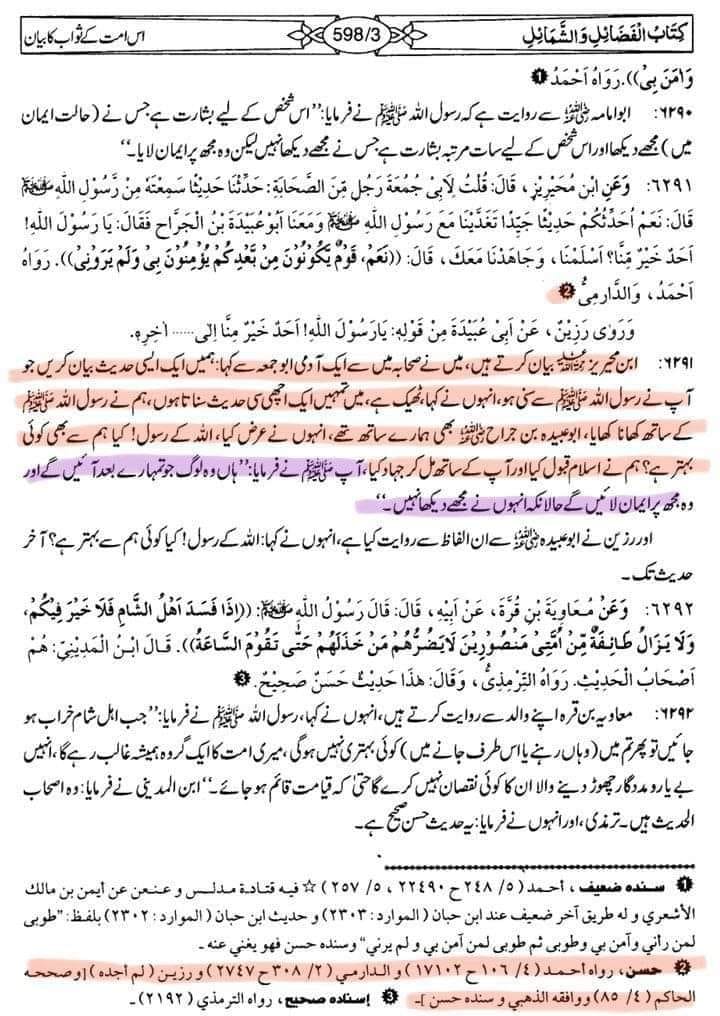 كِتَابُ الْفَضَائِلِ وَالشَّمَائِلِ 598/3 اس امت کے ثواب کا بیان
وَاٰمَنَ بِیْ)). رَوَاهُ اَحْمَدُ ❶
۶۲۹۰: ابوامامہ رضی اللہ عنہ سے روایت ہے کہ رسول اللہ ﷺ نے فرمایا: ’’اس شخص کے لیے بشارت ہے جس نے (حالت ایمان
میں) مجھے دیکھا اور اس شخص کے لیے سات مرتبہ بشارت ہے جس نے مجھے دیکھا نہیں لیکن وہ مجھ پر ایمان لایا۔‘‘
۶۲۹۱: وَعَنِ ابْنِ مُحَيْرِيْزٍ، قَالَ: قُلْتُ لِاَبِیْ جُمُعَةَ رَجُلٍ مِّنَ الصَّحَابَةِ: حَدِّثْنَا حَدِيْثًا سَمِعْتَهُ مِنْ رَّسُوْلِ اللّٰهِ ﷺ
قَالَ: نَعَمْ اُحَدِّثُكُمْ حَدِيْثًا جَيِّدًا تَغَدَّيْنَا مَعَ رَسُوْلِ اللّٰهِ ﷺ وَمَعَنَا اَبُوْعُبَيْدَةَ بْنُ الْجَرَّاحِ فَقَالَ: يَا رَسُوْلَ اللّٰهِ!
اَحَدٌ خَيْرٌ مِّنَّا؟ اَسْلَمْنَا، وَجَاهَدْنَا مَعَكَ، قَالَ: ((نَعَمْ، قَوْمٌ يَكُوْنُوْنَ مِنْ بَعْدِكُمْ يُؤْمِنُوْنَ بِیْ وَلَمْ يَرَوْنِیْ)). رَوَاهُ
اَحْمَدُ، وَالدَّارِمِیُّ ❷
وَرَوٰی رَزِيْنٌ، عَنْ اَبِیْ عُبَيْدَةَ مِنْ قَوْلِهٖ: يَارَسُوْلَ اللّٰهِ! اَحَدٌ خَيْرٌ مِنَّا اِلٰی...... اٰخِرِهٖ.
۶۲۹۱: ابن محیریز رحمہ اللہ بیان کرتے ہیں، میں نے صحابہ میں سے ایک آدمی ابوجمعہ سے کہا: ہمیں ایک ایسی حدیث بیان کریں جو
آپ نے رسول اللہ ﷺ سے سنی ہو، انہوں نے کہا، ٹھیک ہے، میں تمہیں ایک اچھی سی حدیث سناتا ہوں، ہم نے رسول اللہ ﷺ
کے ساتھ کھانا کھایا، ابوعبیدہ بن جراح رضی اللہ عنہ بھی ہمارے ساتھ تھے، انہوں نے عرض کیا، اللہ کے رسول! کیا ہم سے بھی کوئی
بہتر ہے؟ ہم نے اسلام قبول کیا اور آپ کے ساتھ مل کر جہاد کیا، آپ ﷺ نے فرمایا: ’’ہاں وہ لوگ جو تمہارے بعد آئیں گے اور
وہ مجھ پر ایمان لائیں گے حالانکہ انہوں نے مجھے دیکھا نہیں۔‘‘
اور رزین نے ابوعبیدہ رضی اللہ عنہ سے ان الفاظ سے روایت کیا ہے، انہوں نے کہا: اللہ کے رسول! کیا کوئی ہم سے بہتر ہے؟ آخر
حدیث تک۔
۶۲۹۲: وَعَنْ مُعَاوِيَةَ بْنِ قُرَّةَ، عَنْ اَبِيْهِ، قَالَ: قَالَ رَسُوْلُ اللّٰهِ ﷺ: ((اِذَا فَسَدَ اَهْلُ الشَّامِ فَلَا خَيْرَ فِيْكُمْ،
وَلَا يَزَالُ طَائِفَةٌ مِّنْ اُمَّتِیْ مَنْصُوْرِيْنَ لَا يَضُرُّهُمْ مَنْ خَذَلَهُمْ حَتّٰی تَقُوْمَ السَّاعَةُ)). قَالَ ابْنُ الْمَدِيْنِیِّ: هُمْ
اَصْحَابُ الْحَدِيْثِ. رَوَاهُ التِّرْمِذِیُّ، وَقَالَ: هٰذَا حَدِيْثٌ حَسَنٌ صَحِيْحٌ. ❸
۶۲۹۲: معاویہ بن قرہ اپنے والد سے روایت کرتے ہیں، انہوں نے کہا، رسول اللہ ﷺ نے فرمایا: ’’جب اہل شام خراب ہو
جائیں تو پھر تم میں (وہاں رہنے یا اس طرف جانے میں) کوئی بہتری نہیں ہوگی، میری امت کا ایک گروہ ہمیشہ غالب رہے گا، انہیں
بے یار و مددگار چھوڑ دینے والا ان کا کوئی نقصان نہیں کرے گا حتیٰ کہ قیامت قائم ہو جائے۔‘‘ ابن المدینی نے فرمایا: وہ اصحاب
الحدیث ہیں۔ ترمذی، اور انہوں نے فرمایا: یہ حدیث حسن صحیح ہے۔
❶ سنده ضعيف، أحمد (٥/ ٢٤٨ ح ٢٢٤٩٠، ٥/ ٢٥٧) ☆ فيه قتادة مدلس و عنعن عن أيمن بن مالك
الأشعري و له طريق آخر ضعيف عند ابن حبان (الموارد: ٢٣٠٣) و حديث ابن حبان (الموارد: ٢٣٠٢) بلفظ: "طوبى
لمن رأني وآمن بي وطوبى ثم طوبى لمن آمن بي و لم يرني" وسنده حسن فهو يغني عنه۔
❷ حسن، رواه أحمد (٤/ ١٠٦ ح ١٧١٠٢) و الدارمي (٢/ ٣٠٨ ح ٢٧٤٧) و رزين (لم أجده) [و صححه
الحاكم (٤/ ٨٥) ووافقه الذهبي و سنده حسن]۔ ❸ إسناده صحيح، رواه الترمذي (٢١٩٢)۔